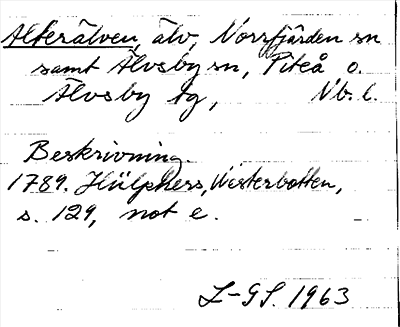 Alterälven, älv, Norrfjärden sn
samt Älvsby sn, Piteå o.
Älvsby tg, Nb. l.
Beskrivning.
1789. Hülphers, Westerbotten,
s. 129, not e.
L-GS. 1963